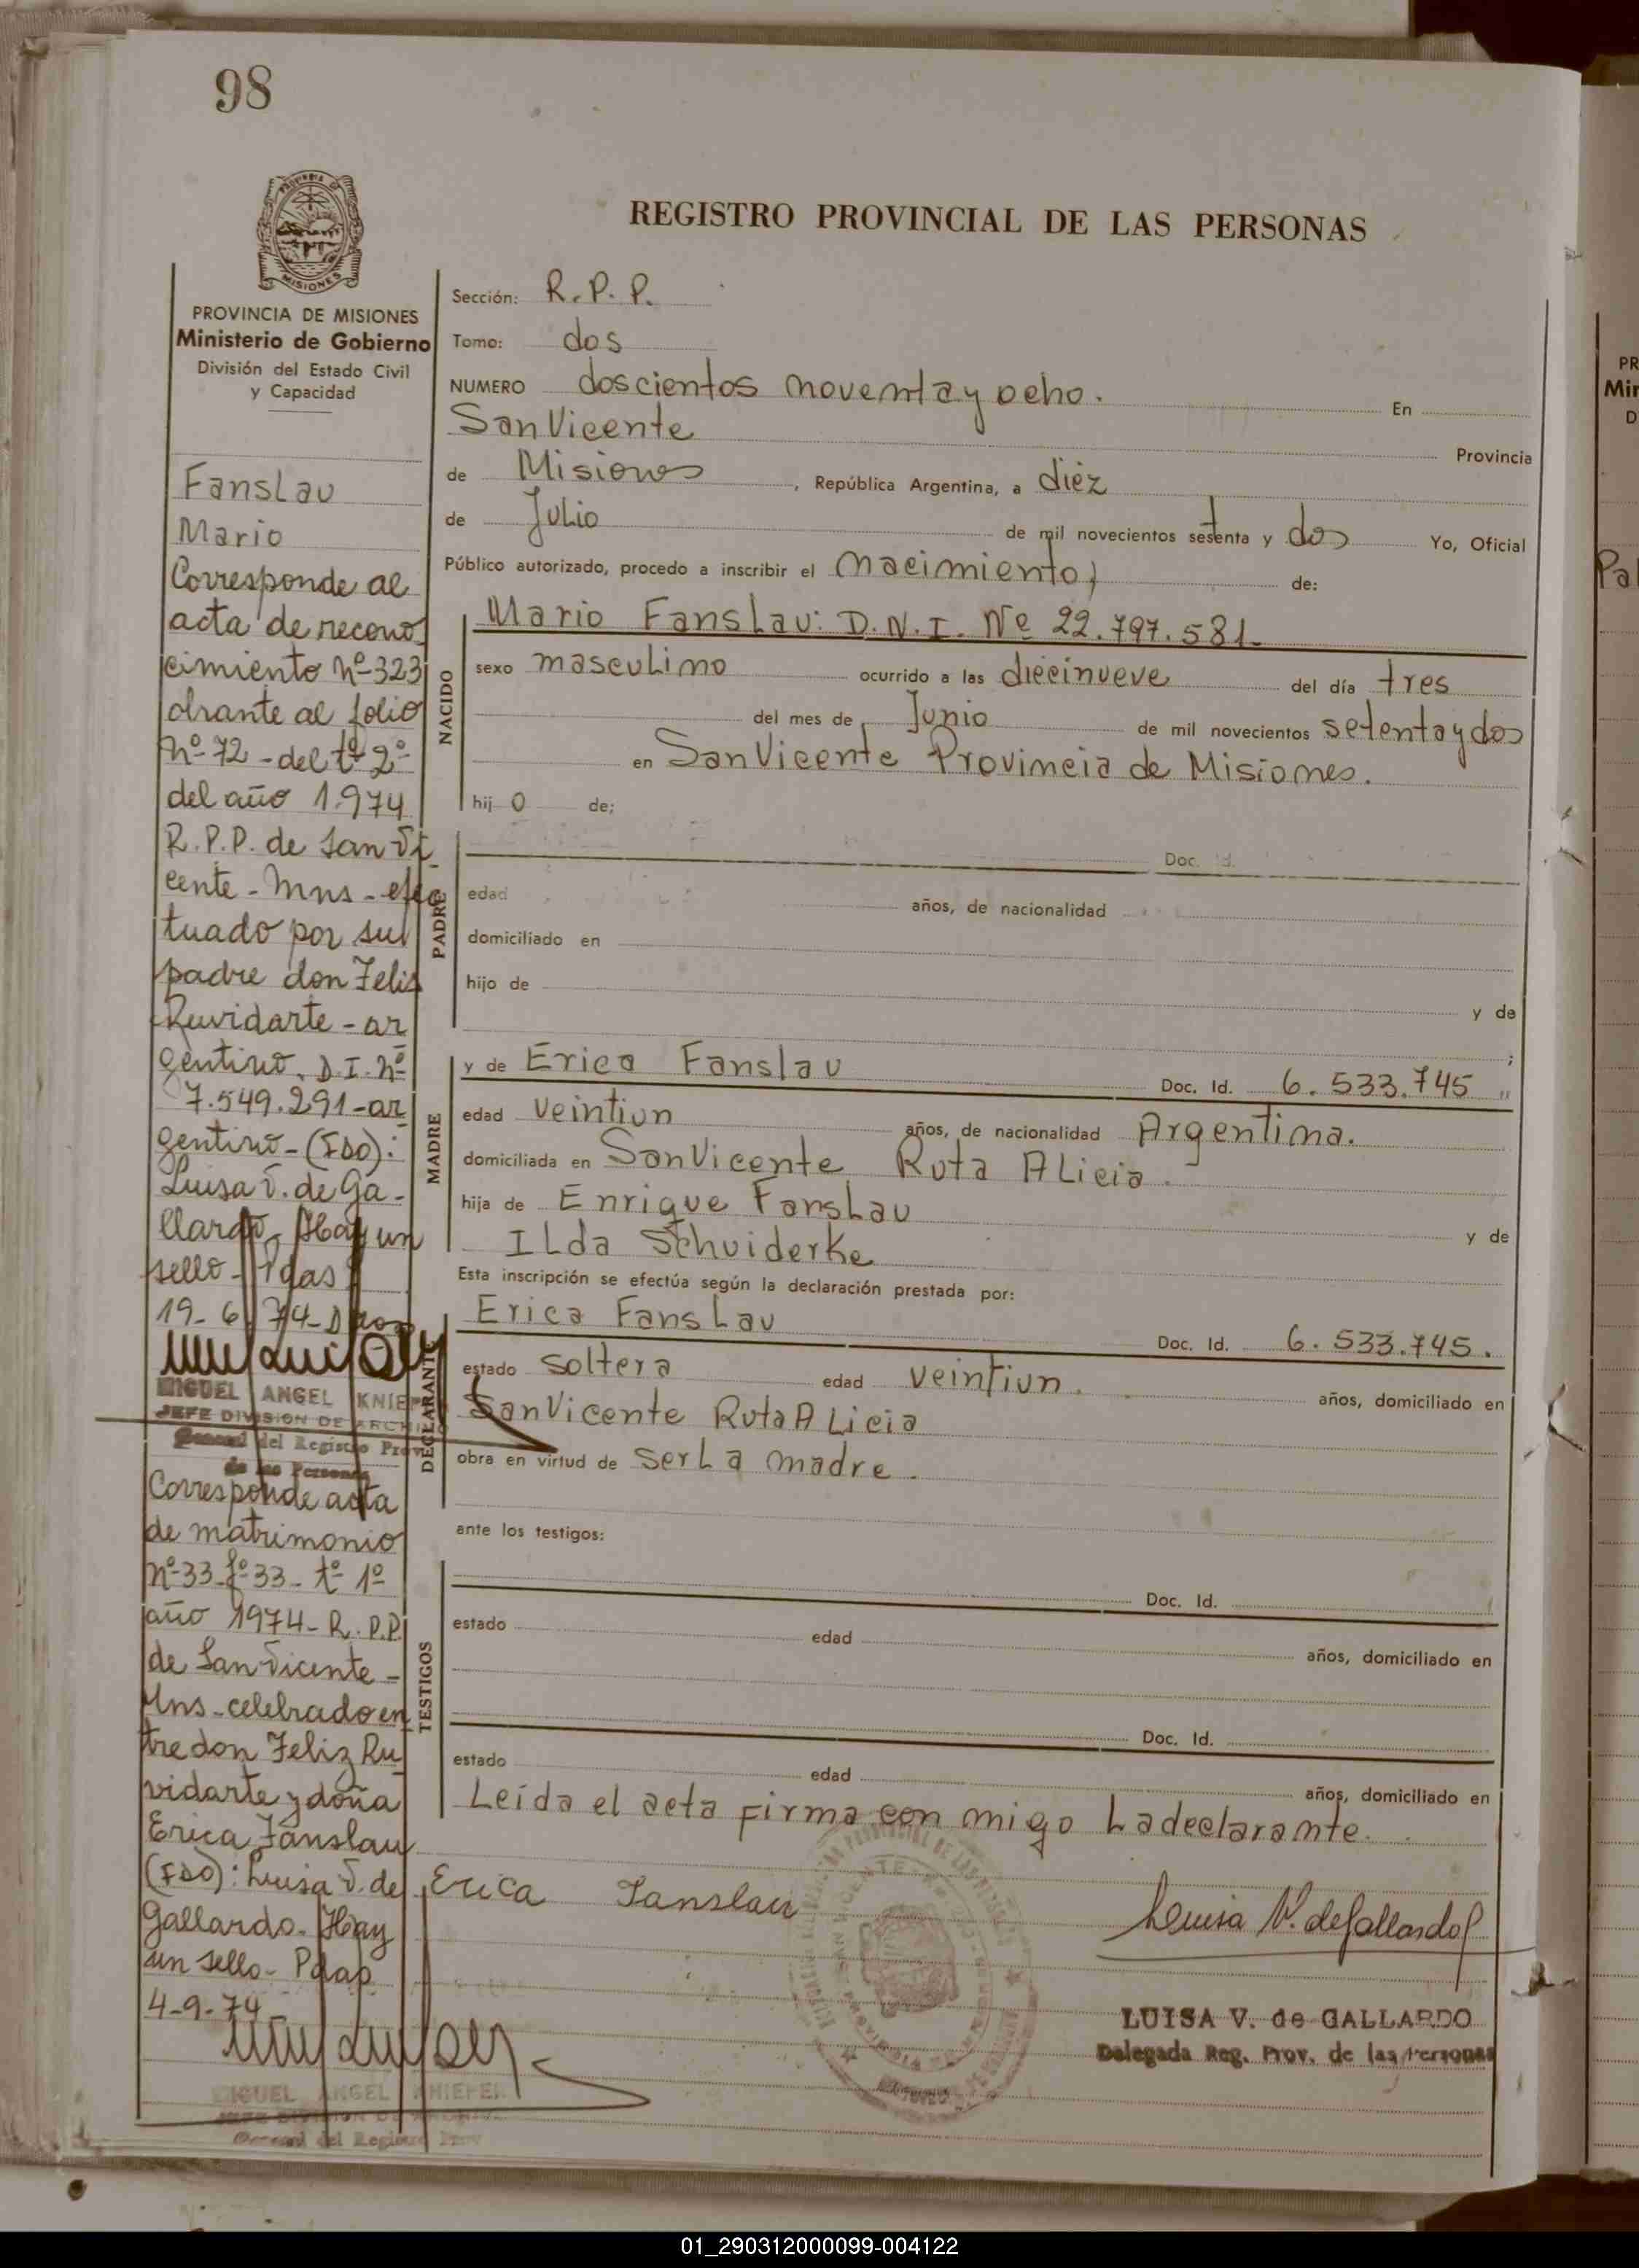 98
REGISTRO PROVINCIAL DE LAS PERSONAS
PROVINCIA DE MISIONES
Ministerio de Gobierno
División del Estado Civil
y Capacidad
Fanslau
Mario
Corresponde al
acta de recono
cimiento Nº 323
obrante al folio
Nº 72 - del tº 2º
del año 1.974
R.P.P. de San Vi
cente - Mns - efec
tuado por su
padre don Felis
Ruvidarte - ar
gentino. D.I. Nº
7.549.291 - ar
gentino - (FDO):
Luisa V. de Ga-
llardo. Hay un
sello - Pdas
19-6-74
MIGUEL ANGEL KNIEP
JEFE DIVISION DE ARCHI
General del Registro Prov
de las Personas
Corresponde acta
de matrimonio
Nº 33 fº 33 - tº 1º
año 1974 - R.P.P.
de San Vicente -
Mns - celebrado en
tre don Feliz Ru
vidarte y doña
Erica Fanslau
(FDO): Luisa V. de
Gallardo. Hay
un sello - Pdas
4-9-74
MIGUEL ANGEL KNIEPE
JEFE DIVISION DE
General del Registro Prov
Sección: R.P.P.
Tomo: dos
NUMERO doscientos noventa y ocho. En
San Vicente Provincia
de Misiones, República Argentina, a diez
de Julio de mil novecientos setenta y dos Yo, Oficial
Público autorizado, procedo a inscribir el nacimiento, de:
NACIDO
Mario Fanslau: D.N.I. Nº 22.797.581.
sexo masculino ocurrido a las diecinueve del día tres
del mes de Junio de mil novecientos setenta y dos
en San Vicente Provincia de Misiones.
hij o de;
PADRE
Doc. Id.
edad años, de nacionalidad
domiciliado en
hijo de y de
;
MADRE
y de Erica Fanslau Doc. Id. 6.533.745 "
edad veintiun años, de nacionalidad Argentina.
domiciliada en San Vicente Ruta Alicia.
hija de Enrique Fanslau y de
Ilda Schuiderke
Esta inscripción se efectúa según la declaración prestada por:
DECLARANTE
Erica Fanslau Doc. Id. 6.533.745.
estado soltera edad veintiun. años, domiciliado en
San Vicente Ruta Alicia
obra en virtud de ser La madre.
ante los testigos:
TESTIGOS
Doc. Id.
estado edad años, domiciliado en
Doc. Id.
estado edad años, domiciliado en
Leída el acta firma con migo La declarante.
Erica Fanslau
Luisa V. de Gallardo
LUISA V. de GALLARDO
Delegada Reg. Prov. de las Personas
PR
Min
D
Pa
01_290312000099-004122